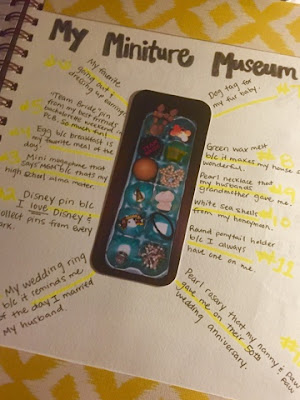 My Miniture Museum
My favorite
going out &
dressing up earrings
"Team Bride" pin
from my best friend's
bachelorette weekend in
PCB. SO much fun!
#5
Egg b/c breakfast is
my favorite meal of the
day.
#4
Mini megaphone that
says
that's my
high school alma mater.
#3
Disney pin b/c
I love Disney &
collect pins from every
park.
#2
My wedding ring
b/c it reminds me
of the day I married
my husband.
Dog tag for
my fur baby.
#7
Green wax melt
b/c it makes my house
smell
#8
Pearl necklace that
my husbands
grandmother gave me.
#9
White sea shells
from my honeymoon.
#10
Round ponytail holder
b/c I always
have one on me.
#11
Pearl rosary that my nanny & paw
paw
gave me on their 50th
wedding anniversary.